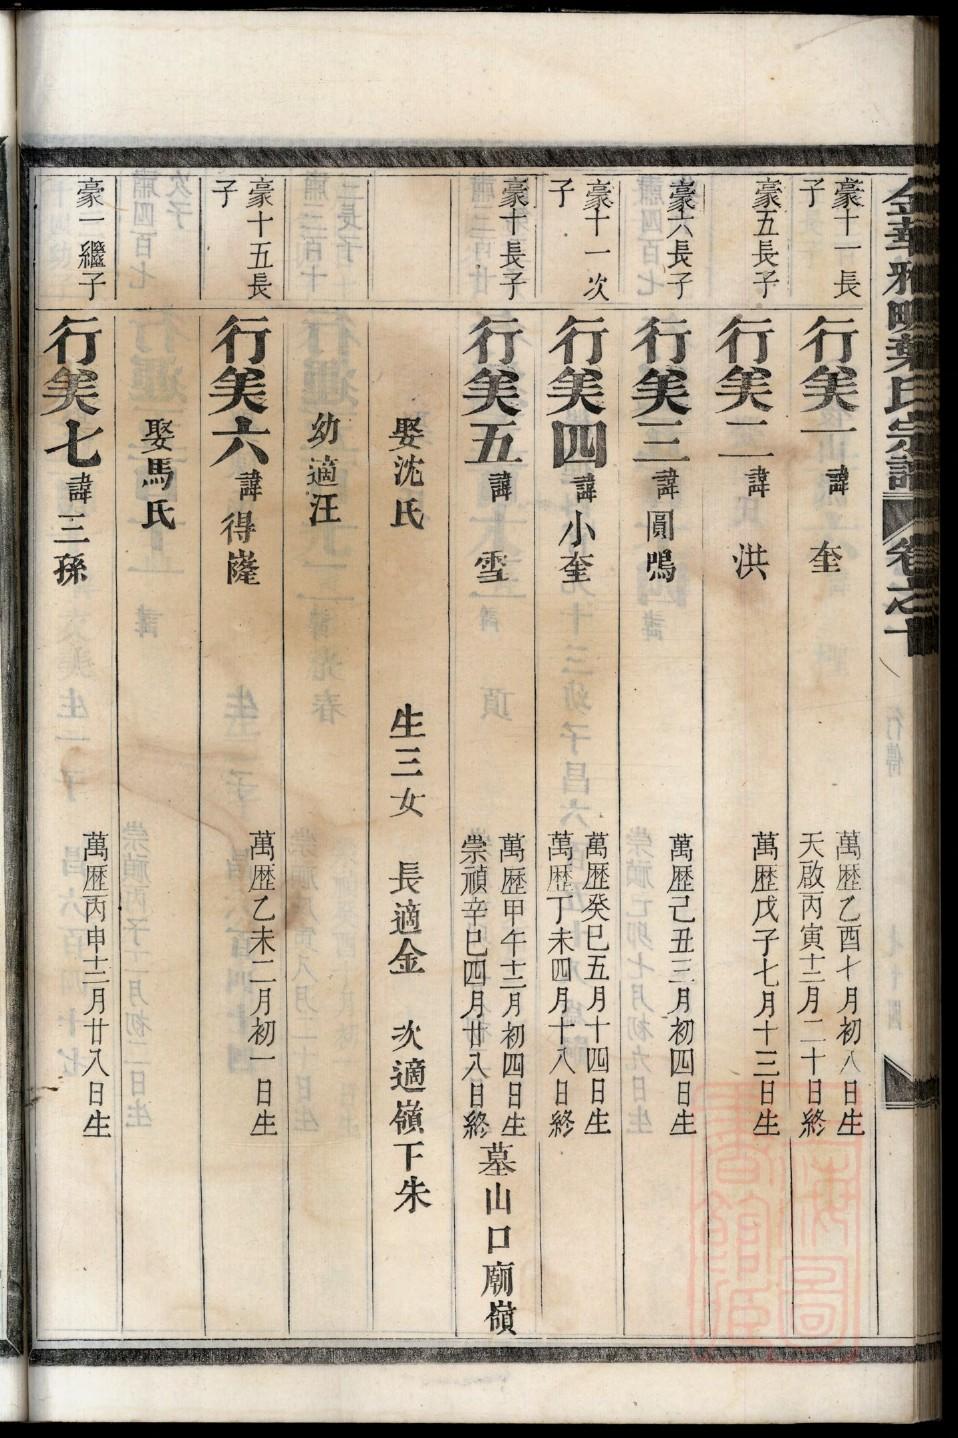 金華雅畈葉氏宗譜 卷之十
豪十一長子
行美一 諱奎 萬歷乙酉七月初八日生
天啟丙寅十二月二十日終
豪五長子
行美二 諱洪 萬歷戊子七月十三日生
豪六長子
行美三 諱圓鳴 萬歷己丑三月初四日生
豪十一次子
行美四 諱小奎 萬歷癸巳五月十四日生
萬歷丁未四月十八日終
豪十長子
行美五 諱雪 萬歷甲午十二月初四日生
崇禎辛巳四月廿八日終 墓山口廟嶺
娶沈氏 生三女 長適金 次適嶺下朱
幼適汪
豪十五長子
行美六 諱得嶐 萬歷乙未二月初一日生
娶馬氏
豪一繼子
行美七 諱三孫 萬歷丙申十二月廿八日生